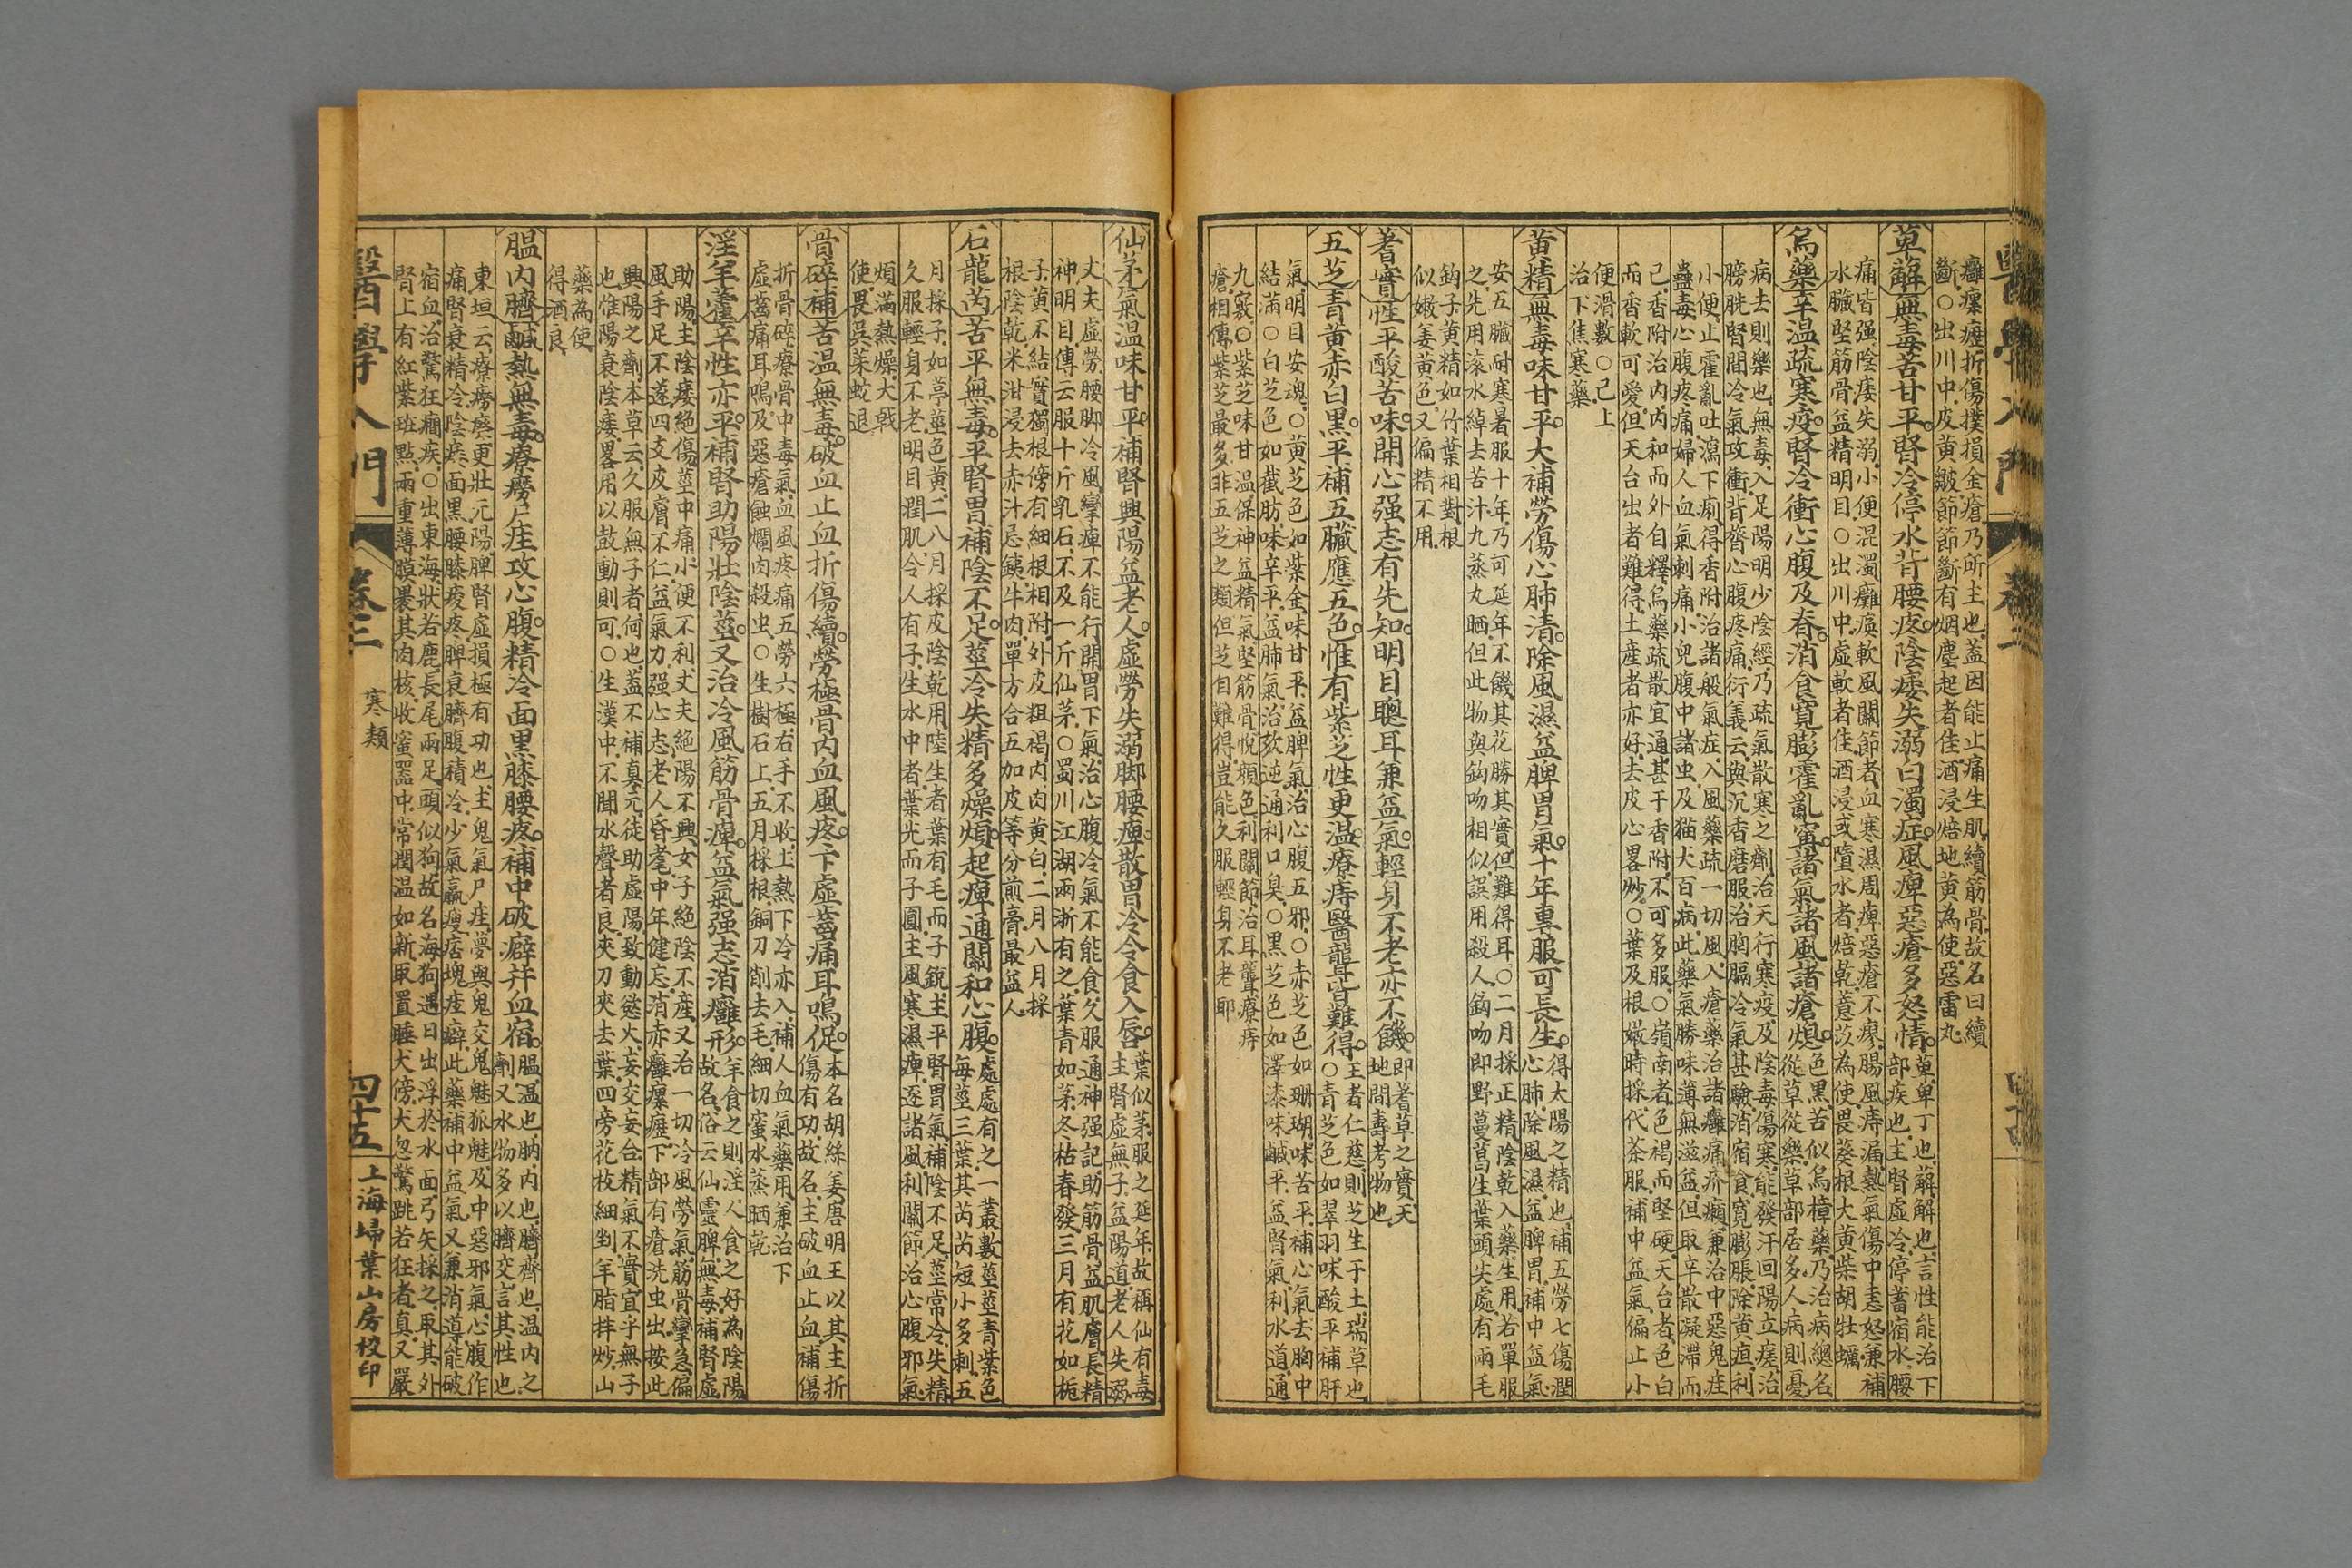 癰瘰癧折傷撲損金瘡乃所主也蓋因能止痛生肌續筋骨故名曰續
斷○出川中皮黃皺節節斷有烟塵起者佳酒浸焙地黃為使惡雷丸
萆薢無毒苦甘平腎冷停水背腰疼陰痿失溺白濁症風痺惡瘡多怒情
萆卑下也薢解也言性能治下
部疾也主腎虛冷停蓄宿水腰
痛皆强陰痿失溺小便混濁癱瘓軟風關節老血寒濕周痺惡瘡不瘳腸風痔漏熱氣傷中恚怒兼補
水臟堅筋骨益精明目○出川中虛軟者佳酒浸或墮水者焙乾薏苡為使畏葵根大黃柴胡牡蠣
烏藥辛温疏寒疫腎冷衝心腹及脊消食寬膨霍亂寗諸氣諸風諸瘡熄
色黑苦似烏樟藥乃治病總名
從草從樂草部居多人病則憂
病去則樂也無毒入足陽明少陰經乃疏氣散寒之劑治天行寒疫及陰毒傷寒能發汗回陽立瘥治
膀胱腎間冷氣攻衝背膂心腹疼痛衍義云與沉香磨服治胸膈冷氣甚驗消宿食寬膨脹除黃疸利
小便止霍亂吐瀉下痢得香附治諸般氣症入風藥疏一切風入瘡藥治諸癰痛疥癩兼治中惡鬼疰
蠱毒心腹疼痛婦人血氣刺痛小兒腹中諸虫及猫犬百病此藥氣勝味薄無滋益但取辛散凝滯而
已香附治内内和而外自釋烏藥疏散宜通甚于香附不可多服○嶺南者色褐而堅硬天台者色白
而香軟可愛但天台出者難得土産者亦好去皮心畧炒○葉及根嫩時採代茶服補中益氣偏止小
便滑數○已上
治下焦寒藥
黃精無毒味甘平大補勞傷心肺清除風濕益脾胃氣十年專服可長生
得太陽之精也補五勞七傷潤
心肺除風濕益脾胃補中益氣
安五臟耐寒暑服十年乃可延年不饑其花勝其實但難得耳○二月採正精陰乾入藥生用若單服
之先用滚水綽去苦汁九蒸丸晒但此物與鈎吻相似誤用殺人鈎吻即野蔓菖生葉頭尖處有兩毛
鈎子黃精如竹葉相對根
似嫩姜黃色又偏精不用
蓍實性平酸苦味開心强志有先知明目聰耳兼益氣輕身不老亦不饑
即蓍草之實天
地間壽考物也
五芝青黃赤白黑平補五臟應五色惟有紫芝性更温療痔醫聾皆難得
王者仁慈則芝生于土瑞草也
○青芝色如翠羽味酸平補肝
氣明目安魂○黃芝色如紫金味甘平益脾氣治心腹五邪○赤芝色如珊瑚味苦平補心氣去胸中
結滿○白芝色如截肪味辛平益肺氣治欬逆通利口臭○黑芝色如澤漆味鹹平益腎氣利水道通
九竅○紫芝味甘温保神益精氣堅筋骨悅顏色利關節治耳聾療痔
瘡相傳紫芝最多非五芝之類但芝自難得豈能久服輕身不老耶
醫學入門
卷二
仙茅氣温味甘平補腎興陽益老人虛勞失溺脚腰痺散胃冷令食入唇
葉似茅服之延年故稱仙有毒
主腎虛無子益陽道老人失溺
丈夫虛勞腰脚冷風攣痺不能行開胃下氣治心腹冷氣不能食久服通神强記助筋骨益肌膚長精
神明目傳云服十斤乳石不及一斤仙茅○蜀川江湖兩浙有之葉青如茅冬枯春發三月有花如梔
子黃不結實獨根傍有細根相附外皮粗褐内肉黃白二月八月採
根陰乾米泔浸去赤汁忌鐵牛肉單方合五加皮等分煎膏最益人
石龍芮苦平無毒平腎胃補陰不足莖冷失精多燥煩起痺通關和心腹
處處有之一叢數莖莖青紫色
每莖三葉其芮芮短小多刺五
月採子如葶藶色黃二八月採皮陰乾用陸生者葉有毛而子銳主平腎胃氣補陰不足莖常冷失精
久服輕身不老明目潤肌令人有子生水中者葉光而子圓主風寒濕痺逐諸風利關節治心腹邪氣
煩滿熱燥大戟
使畏吳茱蛇退
骨碎補苦温無毒破血止血折傷續勞極骨内血風疼下虛齒痛耳鳴促
本名胡絲姜唐明王以其主折
傷有功故名主破血止血補傷
折骨碎療骨中毒氣血風疼痛五勞六極右手不收上熱下冷亦入補人血氣藥用兼治下
虛齒痛耳鳴及惡瘡蝕爛肉殺虫○生樹石上五月採根銅刀削去毛細切蜜水蒸晒乾
淫羊藿辛性亦平補腎助陽壯陰莖又治冷風筋骨痺益氣强志消癰形
羊食之則淫人食之好為陰陽
故名俗云仙靈脾無毒補腎虛
助陽主陰痿絶傷莖中痛小便不利丈夫絶陽不興女子絶陰不産又治一切冷風勞氣筋骨攣急偏
風手足不遂四支皮膚不仁益氣力强心志老人昏耄中年健忘消赤癰瘰癧下部有瘡洗虫出按此
興陽之劑本草云久服無子者何也蓋不補真元徒助虛陽致動慾火妄交妄合精氣不實宜乎無子
也惟陽衰陰痿畧用以鼓動則可○生漢中不聞水聲者良夾刀夾去葉四旁花枝細剉羊脂拌炒山
藥為使
得酒良
膃肭臍鹹熱無毒療癆尸疰攻心腹精冷面黑膝腰疼補中破癖并血宿
膃温也肭内也臍齊也温内之
劑又水物多以臍交言其性也
東垣云療癆瘵更壯元陽脾腎虛損極有功也主鬼氣尸疰夢與鬼交鬼魅狐魅及中惡邪氣心腹作
痛腎衰精冷陰痿面黑腰膝痠疼脾衰臍腹積冷少氣羸瘦痞塊疰癖此藥補中益氣又兼消導能破
宿血治驚狂癎疾○出東海狀若鹿長尾兩足頭似狗故名海狗遇日出浮於水面弓矢採之取其外
腎上有紅紫斑點兩重薄膜裹其肉核收蜜器中常潤温如新取置睡犬傍犬忽驚跳若狂者真又嚴
醫學入門
卷二
寒類
四十五
上海埽葉山房校印